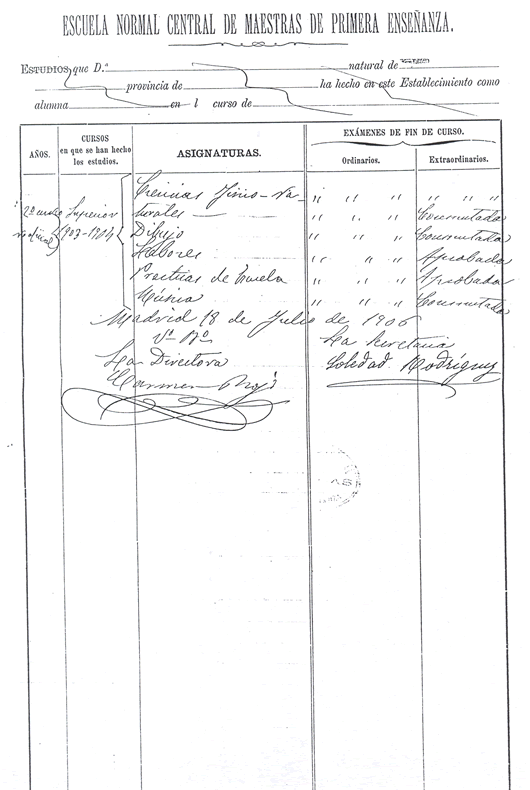 ESCUELA NORMAL CENTRAL DE MAESTRAS DE PRIMERA ENSEÑANZA.
ESTUDIOS que D.ª natural de
provincia de ha hecho en este Establecimiento como
alumna en l curso de
AÑOS. CURSOS en que se han hecho los estudios. ASIGNATURAS. EXÁMENES DE FIN DE CURSO.
Ordinarios. Extraordinarios.
Ciencias Físico-Na- " " " " " "
2º curso Superior turales — " " " Conmutada
no oficial 1903-1904 Dibujo " " " Conmutada
Labores " " " Aprobada
Practicas de Escuela " " " Aprobada
Música " " " Conmutada
Madrid 18 de Julio de 1906
Vº Bº La Secretaria
La Directora Soledad Rodríguez
Carmen Rojo